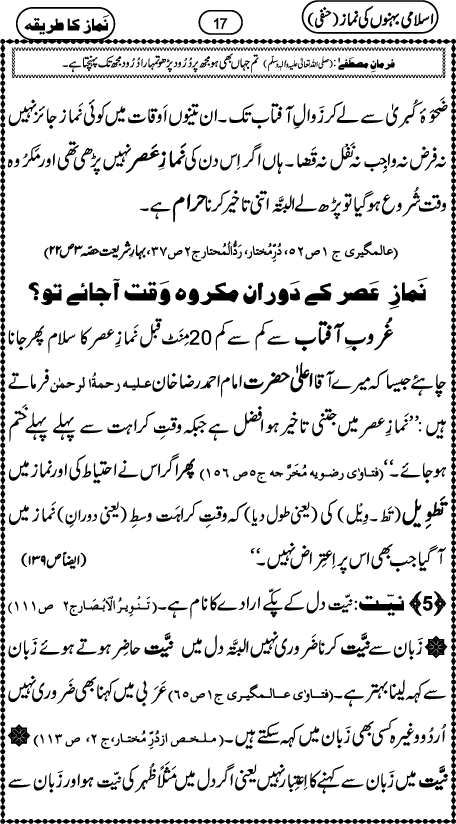 اسلامی بہنوں کی نماز (حنفی)
17
نَماز کا طریقہ
فرمانِ مصطفےٰ: (صلی اللہ تعالیٰ علیہ والہ وسلم) تم جہاں بھی ہو مجھ پر دُرُود پڑھو تمہارا دُرُود مجھ تک پہنچتا ہے۔
ضَحْوَۂ کُبریٰ سے لے کر زَوالِ آفتاب تک۔ ان تینوں اَوقات میں کوئی نَماز جائز نہیں
نہ فرض نہ واجِب نہ نَفْل نہ قضا۔ ہاں اگر اِس دن کی نَمازِ عَصر نہیں پڑھی تھی اور مکروہ
وقت شُروع ہو گیا تو پڑھ لے البتَّہ اتنی تاخیر کرنا حرام ہے۔
(عالمگیری ج ۱ ص۵۲، دُرِّمُختار، رَدُّالْمُحتار ج۲ ص۳۷، بہارِ شریعت حصّہ ۳ ص۲۲)
نَمازِ عَصر کے دَوران مکروہ وَقت آجائے تو؟
غُروبِ آفتاب سے کم سے کم 20 مِنَٹ قبل نَمازِ عصر کا سلام پھر جانا
چاہئے جیسا کہ میرے آقا اعلیٰ حضرت امام احمد رضا خان علیہ رحمۃُ الرحمٰن فرماتے
ہیں: ’’نَمازِ عصر میں جتنی تاخیر ہو افضل ہے جبکہ وقتِ کراہت سے پہلے پہلے خَتْم
ہو جائے۔‘‘ (فتاوٰی رضویہ مُخَرَّجہ ج۵ ص ۱۵۶) پھر اگر اس نے احتیاط کی اور نماز میں
تَطْوِیل (تَط۔وِیل) کی (یعنی طول دیا) کہ وقتِ کراہت وسطِ (یعنی دورانِ) نَماز میں
آگیا جب بھی اس پر اِعتِراض نہیں۔‘‘ (ایضاً ص ۱۳۹)
﴿5﴾ نیّت: نیّت دل کے پکّے ارادے کا نام ہے۔ (تَنوِیرُ الْاَبْصَار ج۲ ص۱۱۱)
۞ زَبان سے نیّت کرنا ضَروری نہیں البتَّہ دل میں نیّت حاضِر ہوتے ہوئے زَبان
سے کہہ لینا بہتر ہے۔ (فتاوٰی عالمگیری ج۱ ص۶۵) عَرَبی میں کہنا بھی ضَروری نہیں
اُردو وغیرہ کسی بھی زَبان میں کہہ سکتے ہیں۔ (ملخص از دُرِّمُختار، ج۲، ص۱۱۳) ۞
نیّت میں زَبان سے کہنے کا اِعتِبار نہیں یعنی اگر دل میں مَثَلاً ظُہر کی نیّت ہو اور زَبان سے